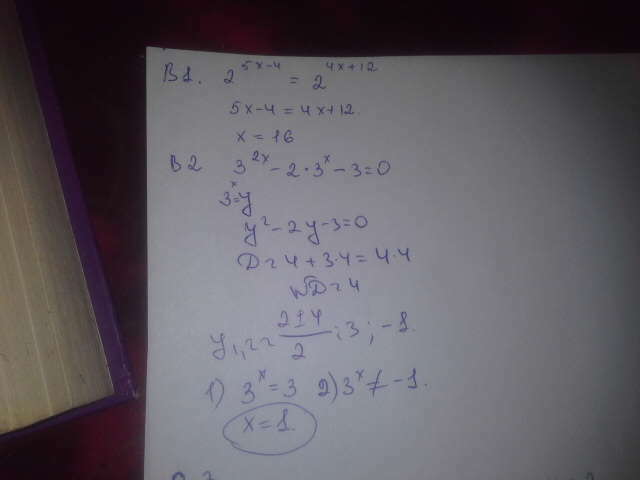 B1. 2^{5x-4} = 2^{4x+12}
5x-4 = 4x+12.
x = 16
B2 3^{2x} - 2·3^x - 3 = 0
3^x = y
y² - 2y - 3 = 0
D = 4 + 3·4 = 4·4
√D = 4
y₁,₂ = (2±4)/2 ; 3 ; -1.
1) 3^x = 3 2) 3^x ≠ -1.
x = 1.